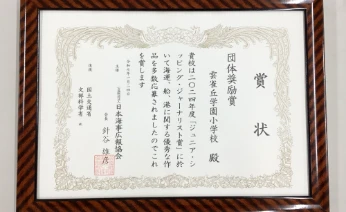 賞状
団体奨励賞
雲雀丘学園小学校 殿
貴校は二〇二四年度「ジュニア・シ
ッピング・ジャーナリスト賞」に於
いて海運、船、港に関する優秀な作
品を多数応募されましたのでこれ
を賞します
主催
日本海事広報協会
会長 針谷 雄彦
後援 国土交通省
文部科学省